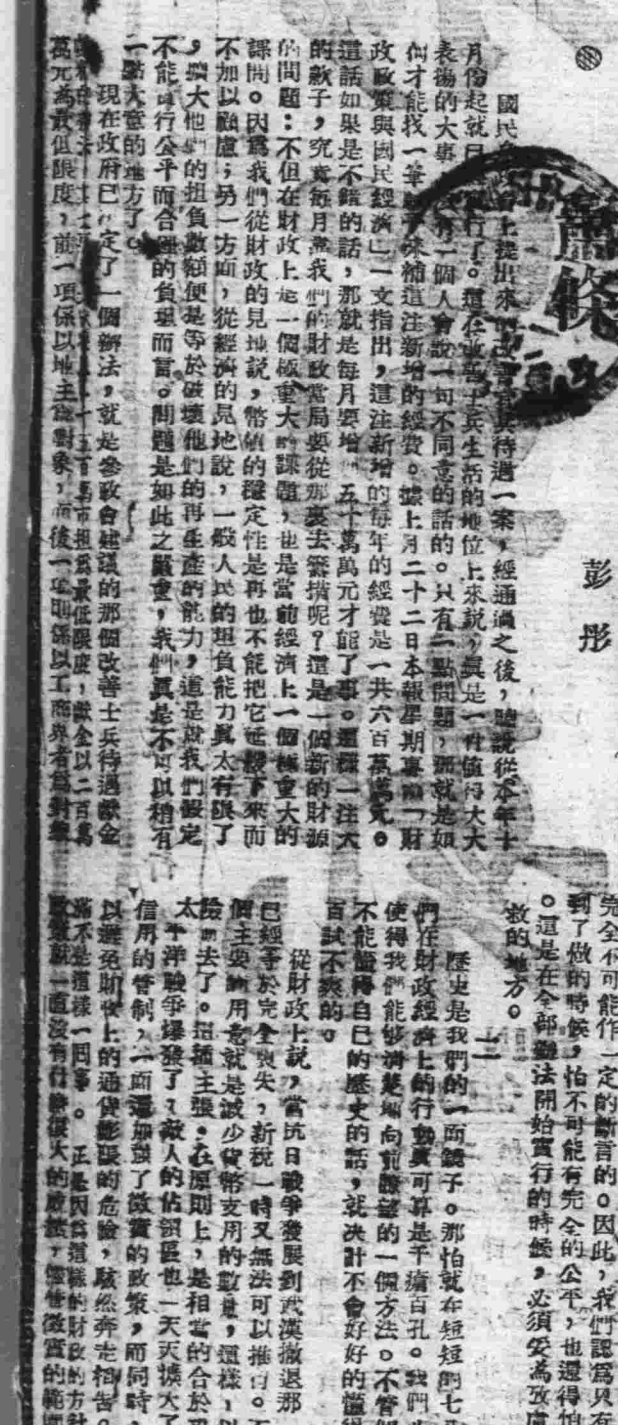 彭彤
國民參政會上提出來的改善官兵待遇一案，經通過之後，聽說從本年十
月份起就已實行了。這在改善士兵生活的地位上來說，眞是一件值得大大
表揚的大事，沒有一個人會說一句不同意的話的。只有一點問題，那就是如
何才能找一筆款子來補這注新增的經費。據上月二十二日本報星期專論「財
政政策與國民經濟」一文指出，這注新增的每年的經費是一共六百萬萬元。
這話如果是不錯的話，那就是每月要增加五十萬萬元才能了事。這樣一注大
的款子，究竟每月當我們的財政當局要從那裏去籌措呢？這是一個新的財源
的問題：不但在財政上是一個極重大的課題，也是當前經濟上一個極重大的
課問。因爲我們從財政的見地說，幣値的穩定性是再也不能把它延緩下來而
不加以顧慮；另一方面，從經濟的見地說，一般人民的担負能力眞太有限了
，擴大他們的担負數額便是等於破壞他們的再生產的能力，這是就我們假定
不能實行公平而合理的負担而言。問題是如此之嚴重，我們眞是不可以稍有
一點大意的地方了。
現在政府已決定了一個辦法，就是參政會建議的那個改善士兵待遇獻金
市担爲最低限度，獻金以二百萬
萬元為最低限度，前一項係以地主為對象，而後一項則係以工商界者爲對象
完全不可能作一定的斷言的。因此，我們認爲只在
到了做的時候，怕不可能有完全的公平，也還得怕
。這是在全部辦法開始實行的時候，必須妥為攷慮
救的地方。
二
歷史是我們的一面鏡子。那怕就在短短的七
們在財政經濟上的行動眞可算是千瘡百孔。我們
使得我們能够淸楚地向前瞭望的一個方法。不管
不能懂得自己的歷史的話，就決計不會好好的懂得
百試不爽的。
從財政上說，當抗日戰爭發展到武漢撤退那
已經等於完全喪失，新稅一時又無法可以推行。
個主要的用意就是減少貨幣支用的數量，這樣，以
險而去了。這種主張。在原則上，是相當的合於
太平洋戰爭爆發了，敵人的佔領區也一天天擴大了
信用的管制，一面還加強了徵實的政策，而同時，
以避免財政上的通貨膨脹的危險，駭然奔走相告。
滿不是這樣一回事。正是因爲這樣的財政的方針
一直沒有什麼很大的成績，儘管徵實的範圍